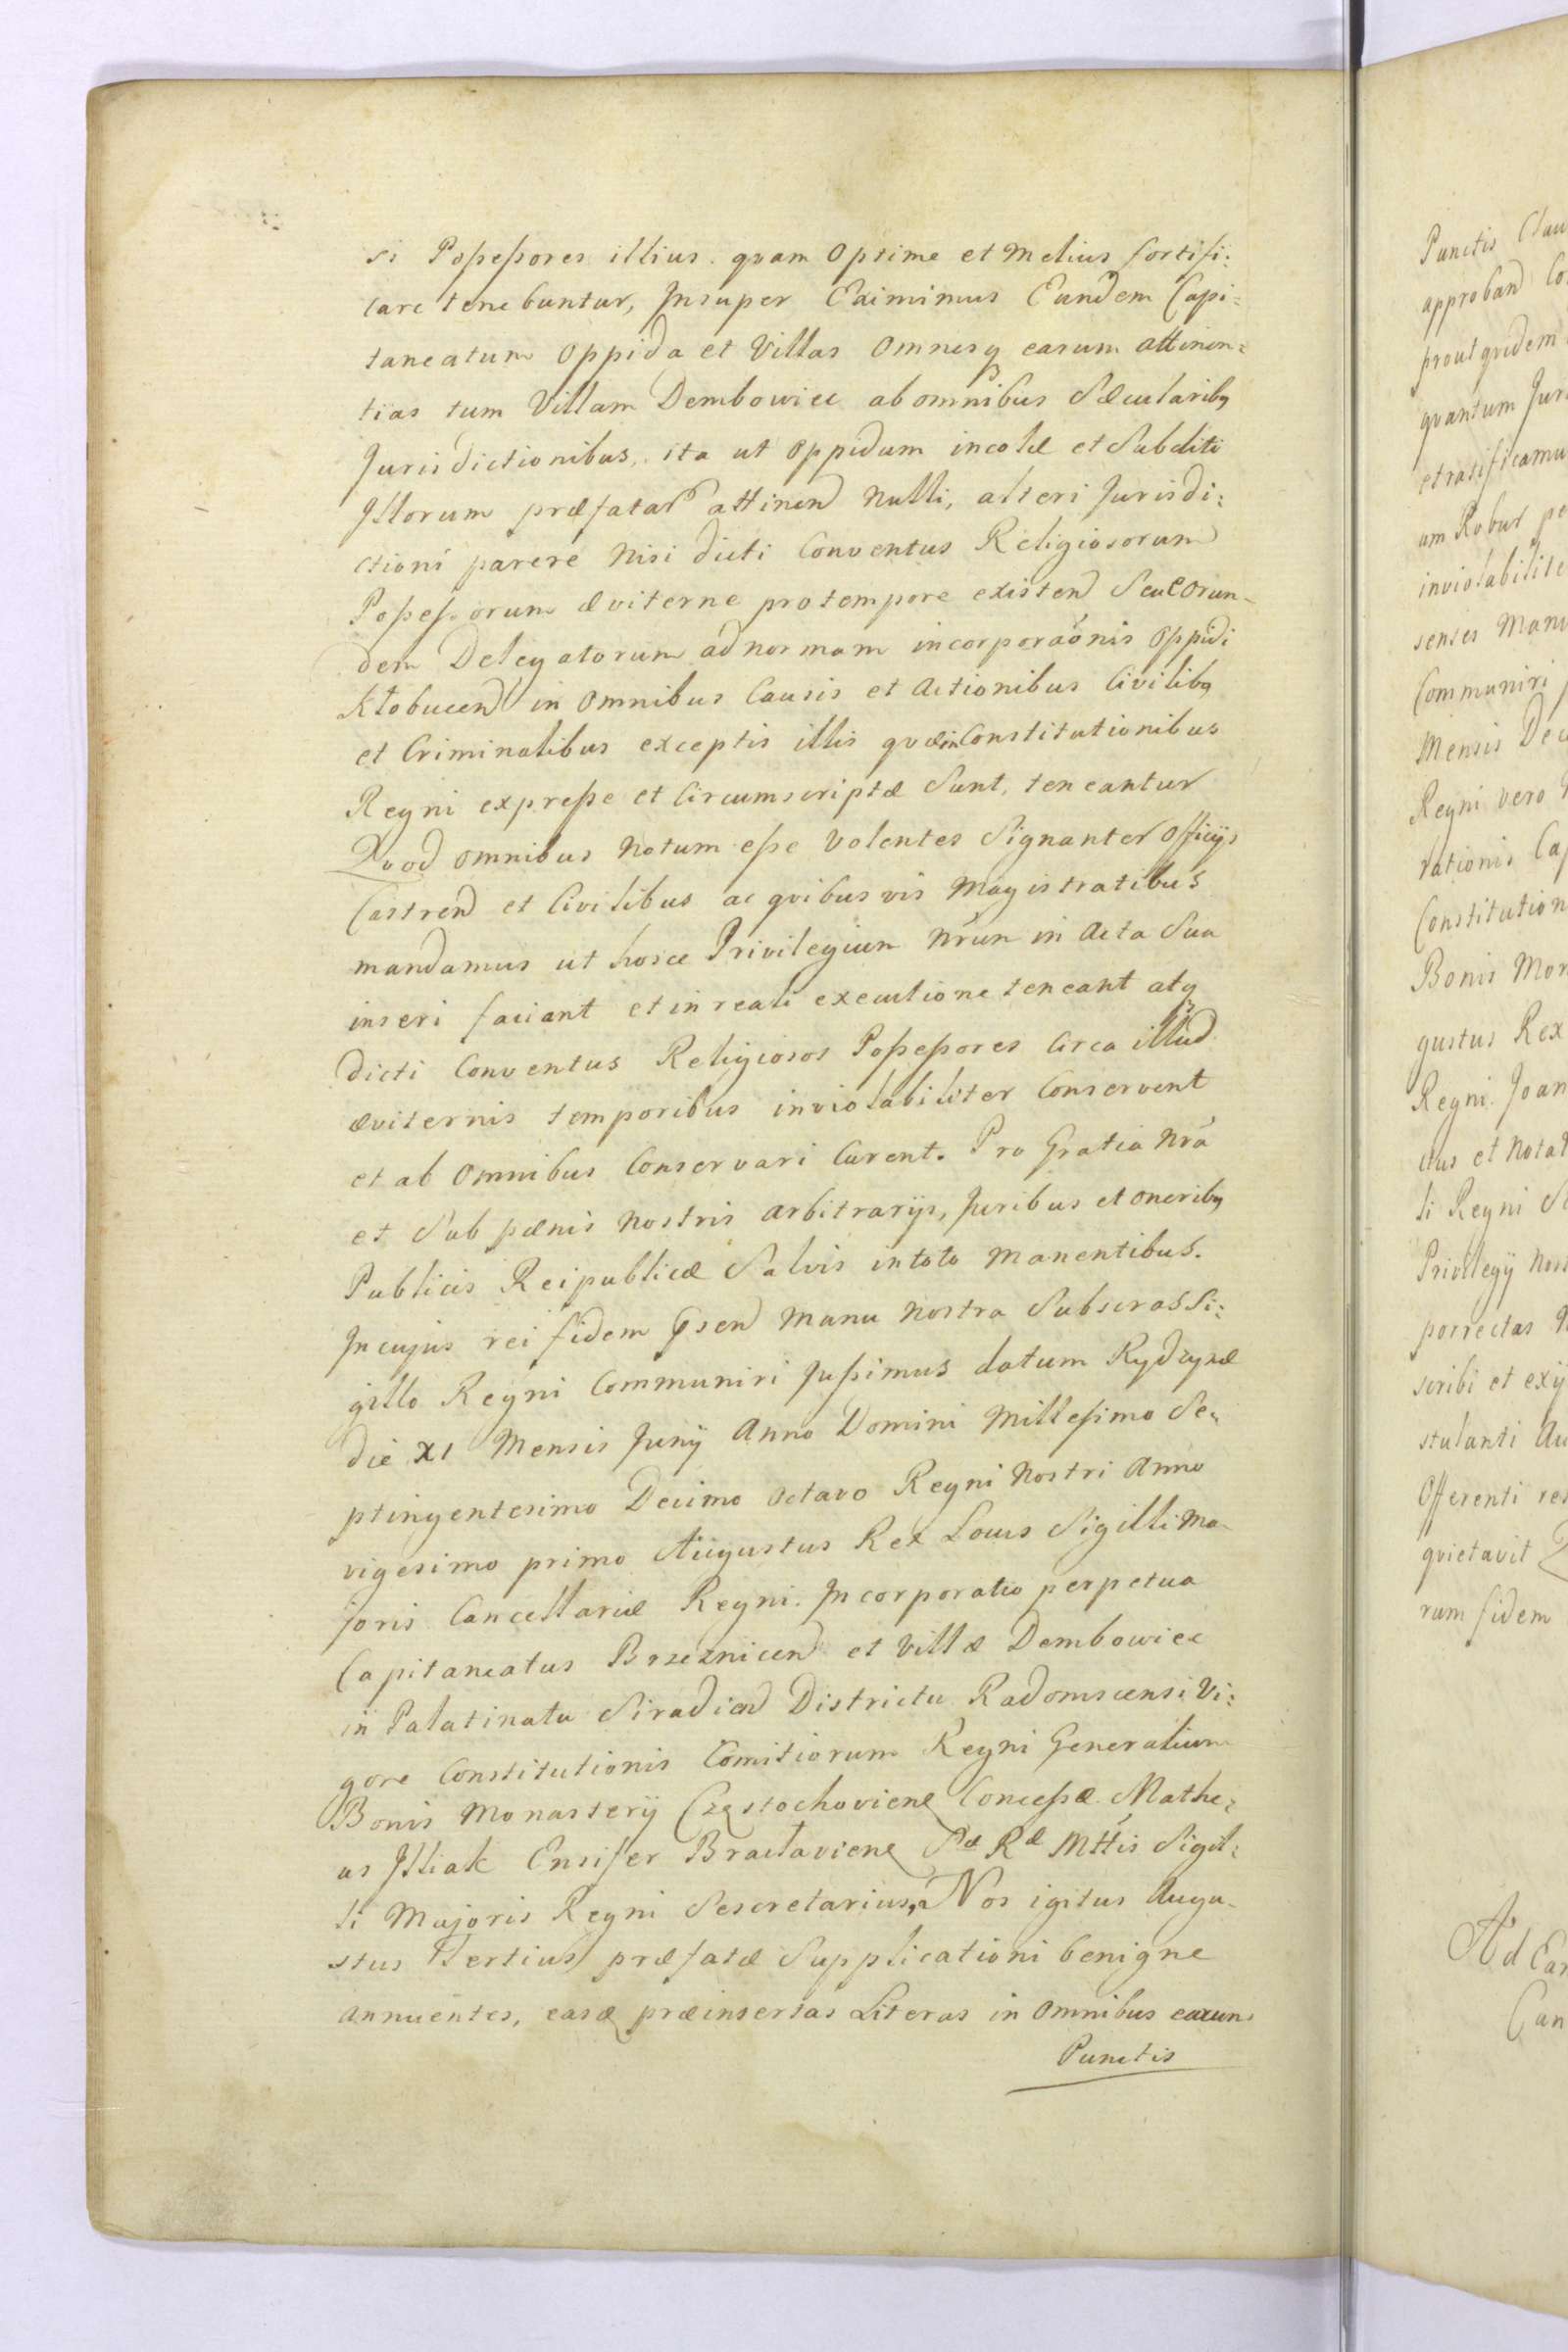 si Poßeßores illius quam Optime et Melius fortifi:
care tenebuntur, Insuper Eximimus Eundem Capi:
taneatum Oppida et Villas Omnesq earum attinen:
tias tum Villam Dembowiec ab omnibus Sæcularibq
Jurisdictionibus, ita ut Oppidum incolæ et Subditi
Illorum præfatar attinen Nulli, alteri Jurisdi:
ctioni parere Nisi dicti Conventus Religiosorum
Poßeßorum æviterne pro tempore existen Seu Eorun-
dem Delegatorum ad normam incorporaónis Oppidi
Kłobucen in Omnibus Causis et Actionibus Civilibq
et Criminalibus exceptis illis qvæ in Constitutionibus
Regni expreße et Circumscriptæ Sunt, teneantur
Qvod omnibus Notum eße Volentes Signanter Officijs
Castren et Civilibus ac qvibusvis Magistratibus
mandamus ut hosce Privilegium Nrum in Acta Sua
inseri faciant et in reali executione teneant atq
dicti Conventus Religiosos Poßeßores Circa illud
æviternis temporibus inviolabiliter Conservent
et ab Omnibus Conservari Curent. Pro Gratia Nra
et Sub pænis Nostris Arbitrarijs, Juribus et Oneribq
Publicis Reipublicæ Salvis in toto Manentibus.
In cujus rei fidem Psen Manu Nostra Subscras Si:
gillo Regni Communiri Jußimus datum Rydzynæ
die XI Mensis Junij Anno Domini Millesimo Se:
ptingentesimo Decimo Octavo Regni Nostri Anno
vigesimo primo Augustus Rex Locus Sigilli Ma-
joris Cancellariæ Regni. Incorporatio perpetua
Capitaneatus Brzeznicen et Villæ Dembowiec
in Palatinatu Siradien Districtu Radomscensi Vi:
gore Constitutionis Comitiorum Regni Generalium
Bonis Monasterij Częstochovien Conceßæ. Mathe:
us Illiak Ensifer Bracłavien Sæ Ræ Mttis Sigil:
li Majoris Regni Sescretarius, Nos igitus Augu-
stus Tertius præfatæ Supplicationi benigne
Annuentes, easq præinsertas Literas in Omnibus earum
Punctis
Punctis
approband
prout qvidem
qvantum
et ratificamu
um Robur
inviolabilite
senses
Communiri
Mensis
Regni vero
rationis
Constitution
Bonis
gustus Rex
Regni. Joan
et Notat
li Regni
Privilegij
porrectas
scribi et
stulanti
Offerenti
qvietavit
rum fidem
Ad